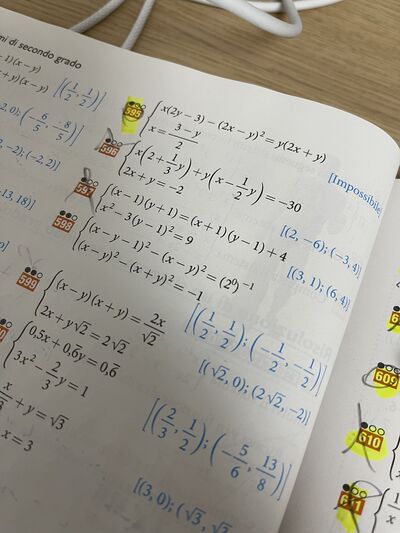 mi di secondo grado
1)(x−y)
+y)(x−y) [(1/2, 1/2)]
2,0); (−6/5, −8/5)]
−2); (−2,2)]
−13, 18)]
595 { x(2y−3)−(2x−y)²=y(2x+y)
x=(3−y)/2 [Impossibile]
596 { x(2+1/3y)+y(x−1/2y)=−30
2x+y=−2 [(2,−6); (−3,4)]
597 { (x−1)(y+1)=(x+1)(y−1)+4
x²−3(y−1)²=9 [(3,1); (6,4)]
598 { (x−y−1)²−(x−y)²=(2⁰)⁻¹
(x−y)²−(x+y)²=−1 [(1/2, 1/2); (−1/2, −1/2)]
599 { (x−y)(x+y)=2x/√2
2x+y√2=2√2 [(√2,0); (2√2,−2)]
{ 0,5x+0,6̅y=0,6̅
3x²−2/3y=1 [(2/3, 1/2); (−5/6, 13/8)]
+y=√3
x=3 [(3,0); (√3,
609
610
611